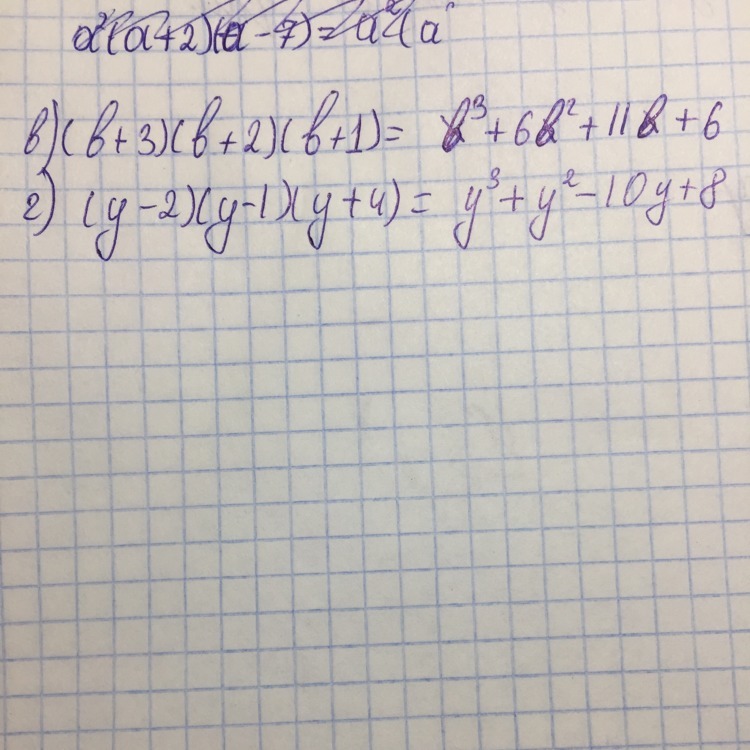 a²(a+2)(a-7)=a²(a
в)(b+3)(b+2)(b+1)= b³+6b²+11b+6
г) (y-2)(y-1)(y+4)= y³+y²-10y+8